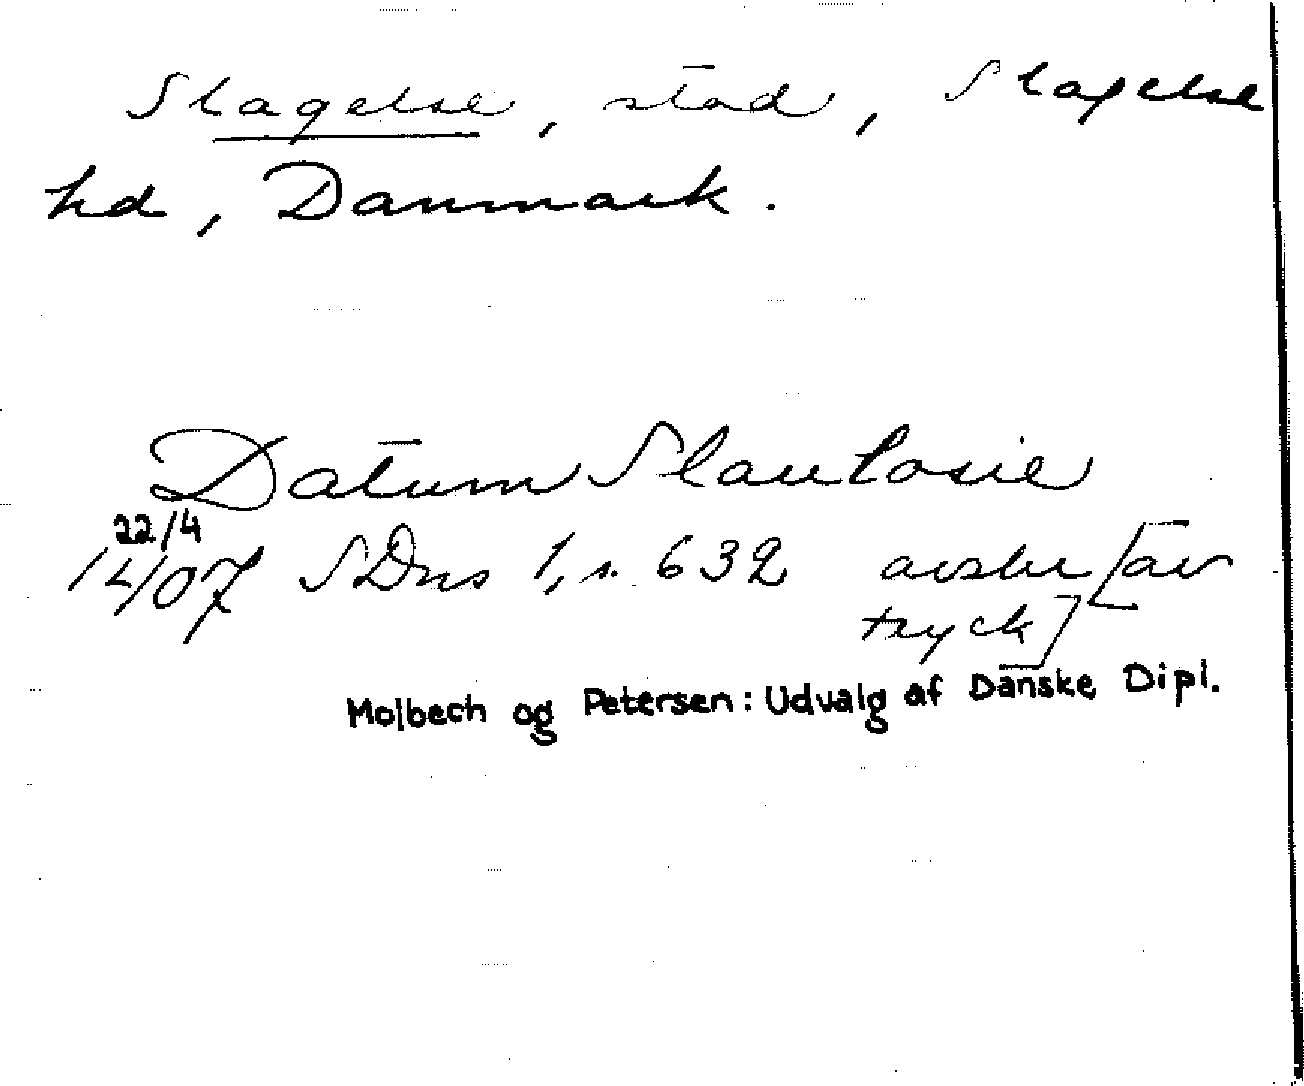 Slagelse, stad, Slagelse
hd, Danmark.
Datum Slaulosie
22/4
14/07 SDns 1, s. 632 avskr [av
tryck]
Molbech og Petersen: Udvalg af Danske Dipl.